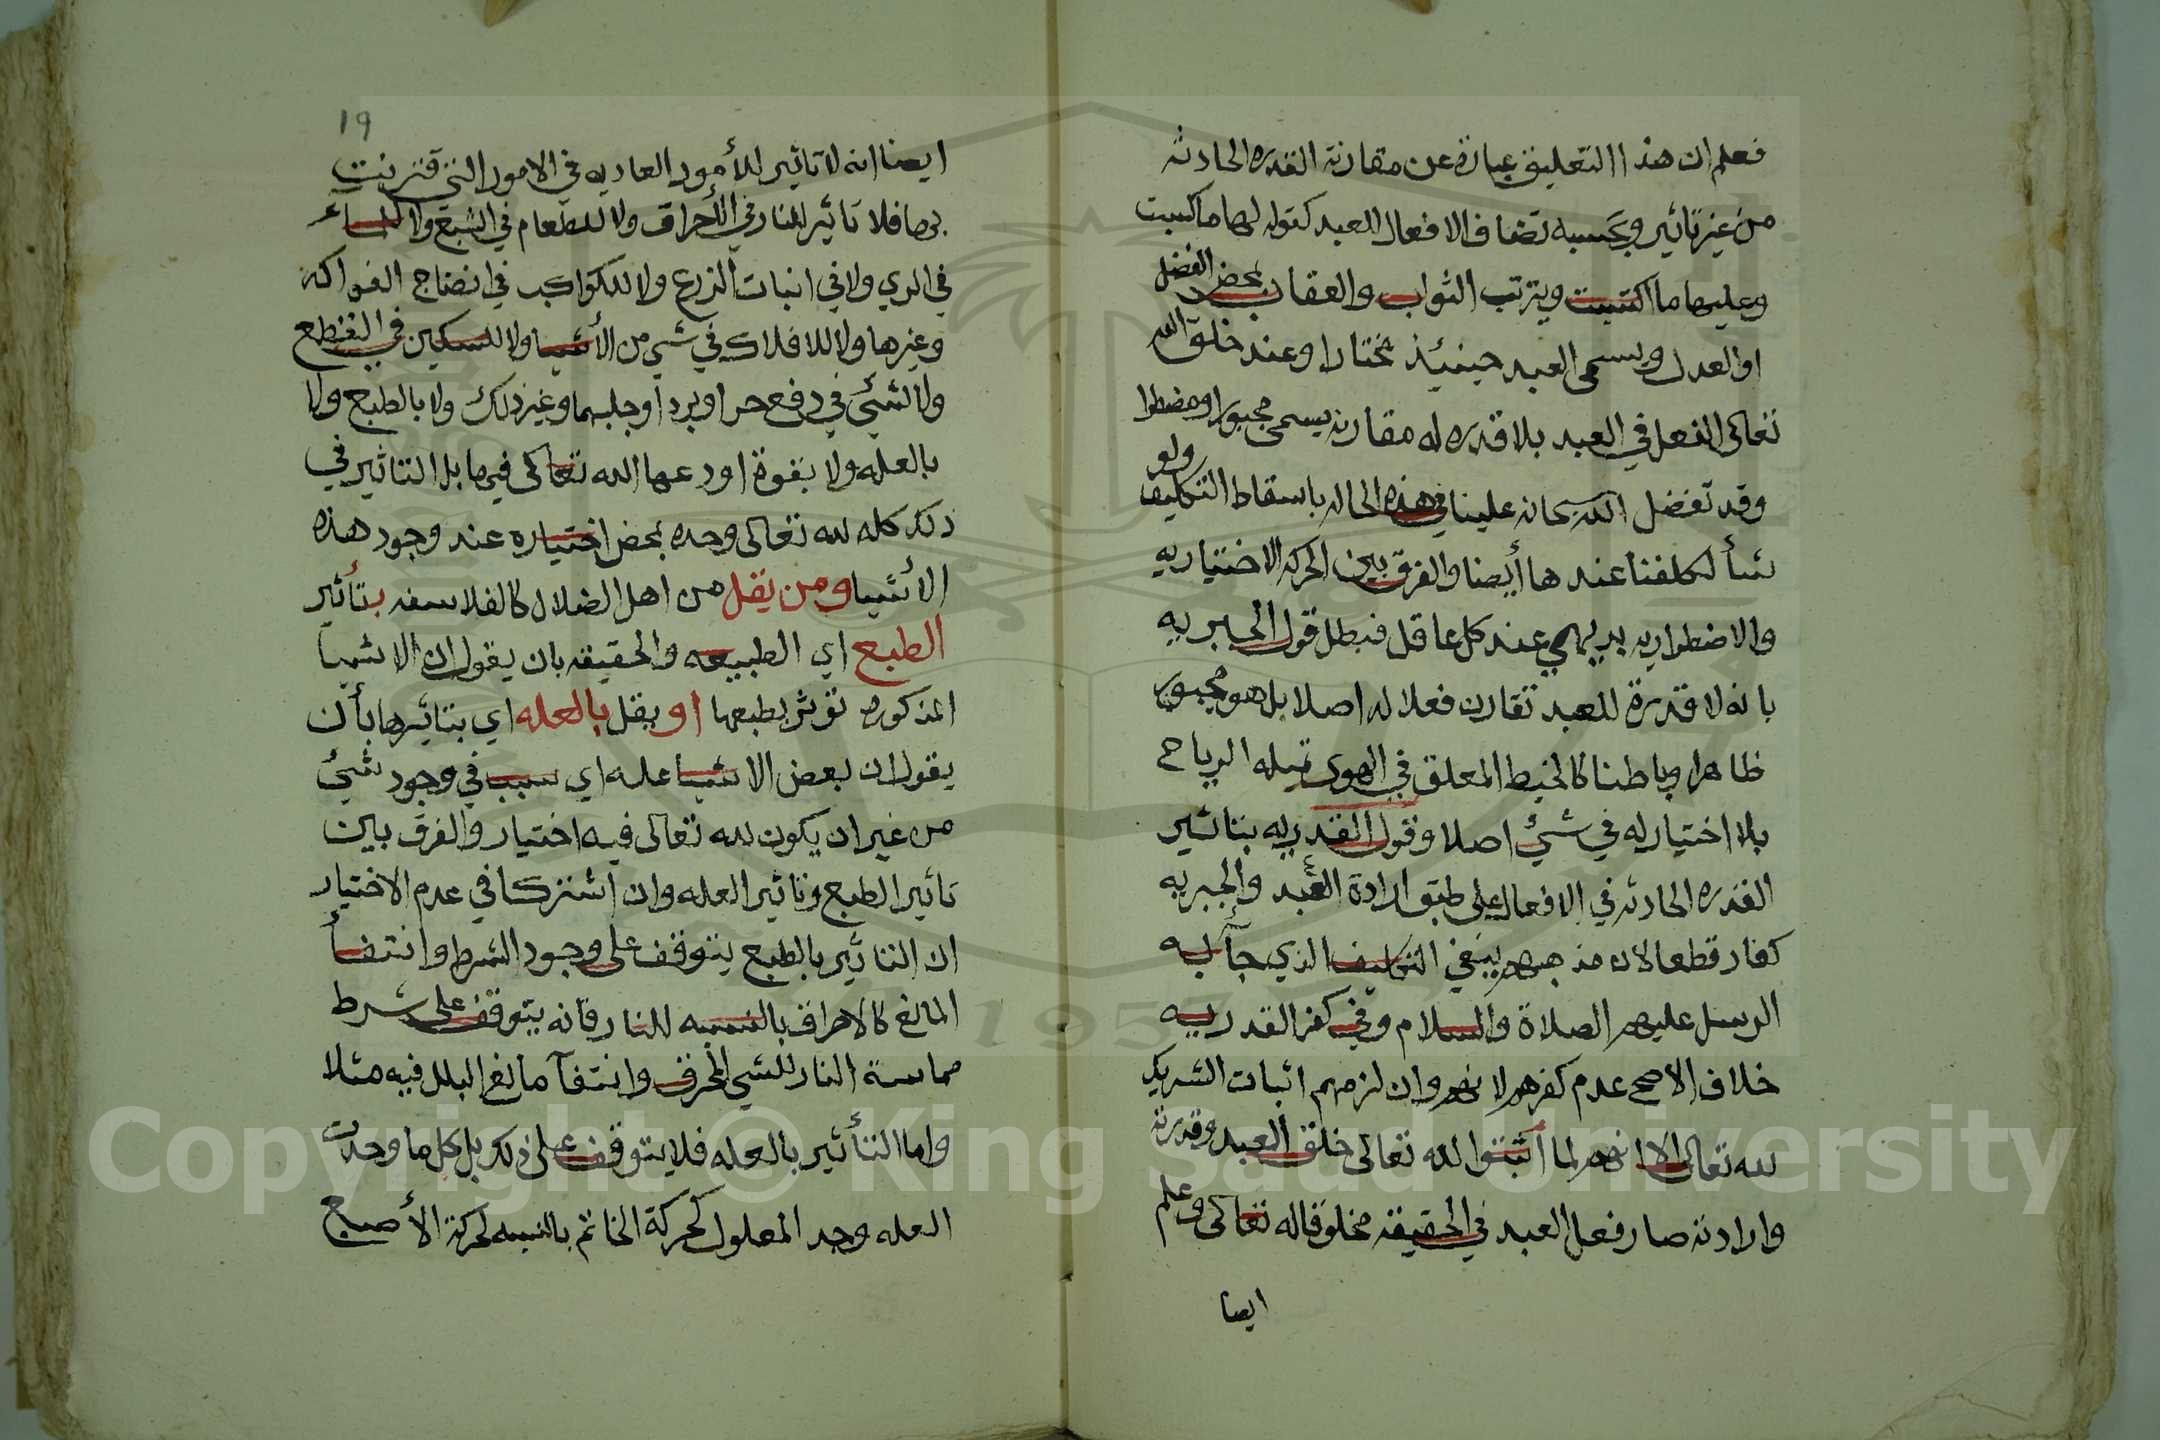 فعلم ان هذا التعليق عبارة عن مقارنة القدره الحادثه
من غير تاثير وبحسبه تضاف الافعال للعبد كقوله لها ما كسبت
وعليها ما اكتسبت ويترتب الثواب والعقاب بمحض الفضل
او العدل ويسمى العبد حينئذ مختارا وعند خلق الله
تعالى الفعل في العبد بلا قدره له مقارنه يسمى مجبورا ومضطرا
وقد تفضل الله سبحانه علينا في هذه الحاله باسقاط التكليف ولو
شأ لكلفنا عندها أيضا والفرق بين الحركه الاختياريه
والاضطراريه بديهي عند كل عاقل فبطل قول الجبريه
بانه لا قدرة للعبد تقارن فعلا له اصلا بل هو مجبور
ظاهرا وباطنا كالخيط المعلق في الهوى تميله الرياح
بلا اختيار له في شئ اصلا وقول القدريه بتاثير
القدره الحادثه في الافعال على طبق ارادة العبد والجبريه
كفار قطعا لان مذهبهم ينفي التكليف الذي جآت به
الرسل عليهم الصلاة والسلام وفي كفر القدريه
خلاف الاصح عدم كفرهم لانهم وان لزمهم اثبات الشريك
لله تعالى الا انهم لما أثبتوا لله تعالى خلق العبد وقدرته
وارادته صار فعل العبد في الحقيقه مخلوقا له تعالى وعلم
ايضا
١٩
ايضا انه لا تاثير للأمور العاديه في الامور التي تقترنت
بها فلا تاثير للنار في الأحراق ولا للطعام في الشبع ولا للماء
في الري ولا في انبات الزرع ولا للكواكب في انضاج الفواكه
وغيرها ولا للافلاك في شي من الأشيا ولا للسكين في القطع
ولا لشئ في دفع حر او برد او جلبهما وغير ذلك ولا بالطبع ولا
بالعله ولا بقوة اودعها الله تعالى فيها بل التاثير في
ذلك كله لله تعالى وحده بمحض اختياره عند وجود هذه
الأشيا ومن يقل من اهل الضلال كالفلاسفه بتأثير
الطبع اي الطبيعه والحقيقه بان يقول ان الاشيا
المذكوره توثر بطبعها او يقل بالعله اي بتاثيرها بأن
يقول ان بعض الاشيا عله اي سبب في وجود شئ
من غير ان يكون لله تعالى فيه اختيار والفرق بين
تاثير الطبع وتاثير العله وان اشتركا في عدم الاختيار
ان التاثير بالطبع يتوقف على وجود الشرط وانتفأ
المانع كالاحراق بالنسبه للنار فانه يتوقف على شرط
مماسة النار للشي المحرق وانتفآ مانع البلل فيه مثلا
واما التأثير بالعله فلا يتوقف على ذلك بل كل ما وجدت
العله وجد المعلول كحركة الخاتم بالنسبه لحركة الأصبع
Copyright © King Saud University
1957